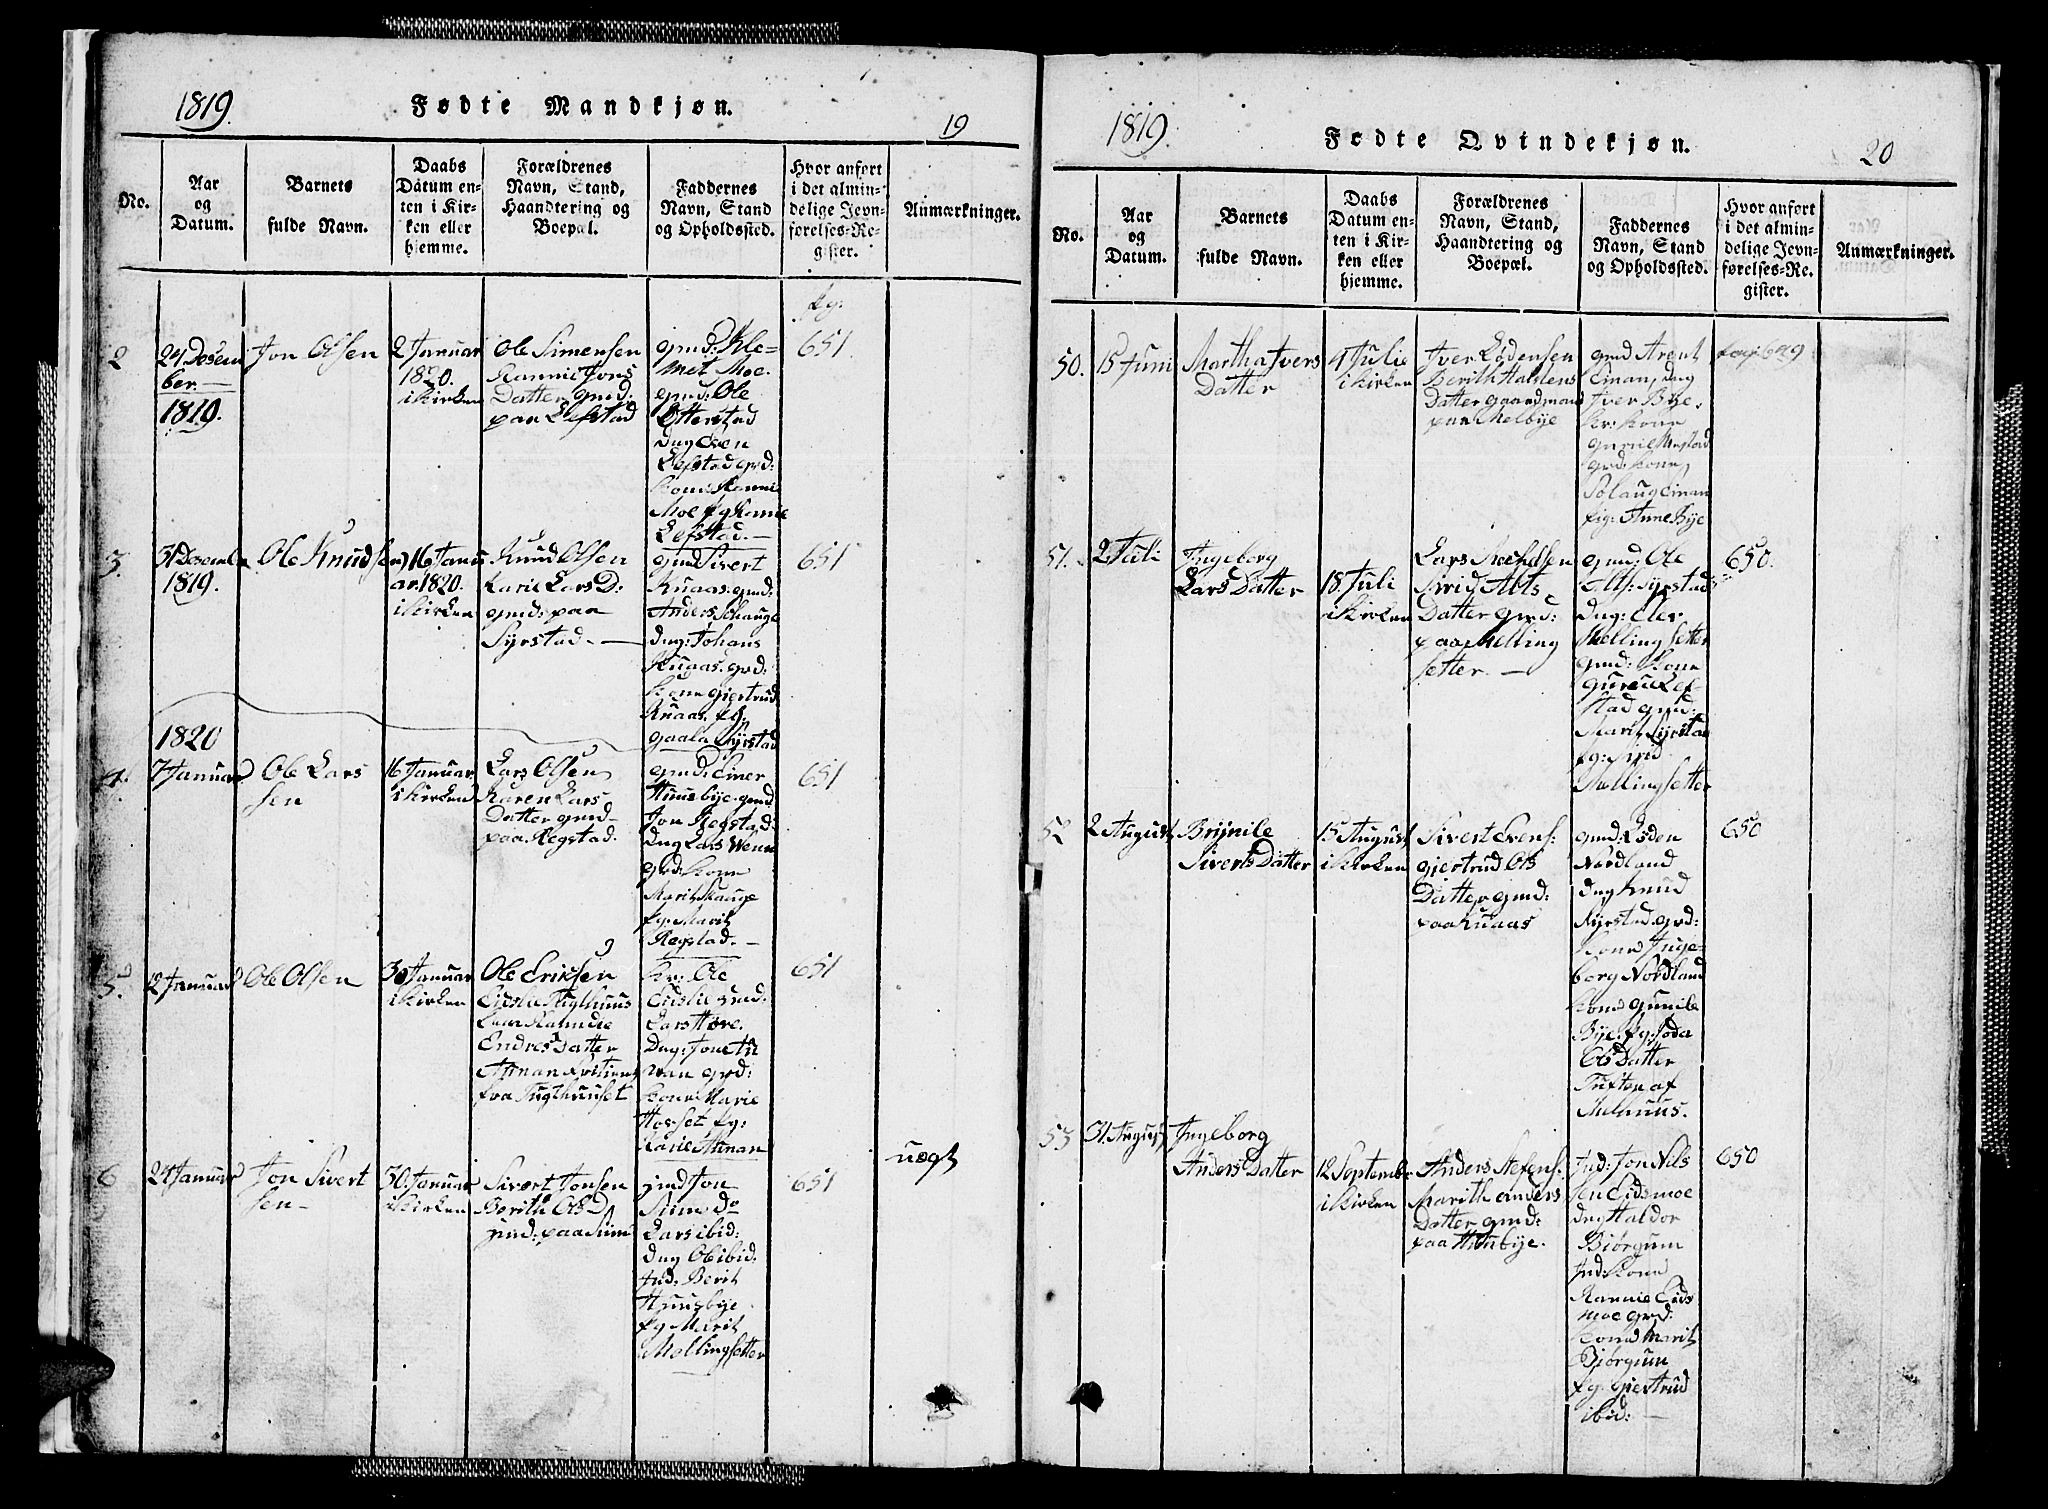 1819.
Fødte Mandkjøn.
19
No.
Aar
og
Datum.
Barnets
fulde Navn.
Daabs
Datum en-
ten i Kir-
ken eller
hjemme.
Forældrenes
Navn, Stand,
Haandtering og
Boepæl.
Faddernes
Navn, Stand
og Opholdssted.
Hvor anført
i det almin-
delige Jevn-
førelses-Re-
gister.
Anmærkninger.
2
24 Desem
ber.
1819.
Jon Olsen
2 Januar
1820.
i Kirken
Ole Simensen
Rannie Jons
Datter gmd:
paa Lefstad
gmd: Kle-
met Moe.
gmd: Ole
Etterstad
Dug Even
Lefstad grd:
kone Rannie
Moe fg Rannie
Lefstad.
fg:
651
3.
31 Desemb
1819.
Ole Knudsen
16 Janu
ar. 1820.
i Kirken
Knud Olsen
Karie Lars D:
gmd: paa
Syrstad
gmd Sivert
Knaas. gmd:
Anders Schauge
Dug: Johans
Knaas. grd:
Kone giertrud
Knaas. fg.
Syrstad
651
1820
4.
7 Januar
Ole Lars
sen
16 Januar
i Kirken
Lars Olsen
Karen Lars
Datter gmd
paa Regstad.
gmd: Einer
Huusbye. gmd
Jon Regstad:
Dug Lars Wenn
grd: Kone
Marit Skauge
fg: Marit
Regstad.
651
5.
12 Januar
Ole Olsen
30 Januar
i Kirken
Ole Eriksen
Endres Datter
fra Tugthuuset
kr: Ole
gmd:
Lars
Dug: Jon
grd:
Kone Marie
Hosset fg:
Karie Annan
651
6
24 Januar
Jon Sivert
sen
30 Januar
i Kirken
Sivert Jonsen
Berith Ols D
gmd: paa Siim
gmd Jon
Siim Do
Lars ibid:
Dug Ol ibid:
Ind: Berit
Huusbye
fg Marit
Mellingsetter
651
uegt
1819.
Fødte Qvindekjøn.
20
No.
Aar
og
Datum.
Barnets
fulde Navn.
Daabs
Datum en-
ten i Kir-
ken eller
hjemme.
Forældrenes
Navn, Stand,
Haandtering og
Boepæl.
Faddernes
Navn, Stand
og Opholdssted.
Hvor anført
i det almin-
delige Jevn-
førelses-Re-
gister.
Anmærkninger.
50.
15 Juni
Martha Ivers
Datter
4 Julie
i Kirken
Iver Lødensen
Berith Halstens
Datter gaardmand
paa Melbye
gmd Arent
Einan, dug
Iver Bye.
kr: kone
grd: kone
Solaug Einan
fig: Anne Bye
fag: 649
51.
2 Juli
Ingeborg
Lars Datter
18. Juli
i Kirken
Lars
Datter gmd:
paa Melling
setter.
gmd: Ole
Syrstad
dug: Eler
Melling setter
gmd: Kone
Guroe Lef-
stad gmd:
Marit Syrstad
fg: Sirid
Mellingsetter
650.
52
2 August
Brynile
Siverts Datter
15 August
i Kirken
Sivert Evens:
giertrud Ols
Datter gmd:
paa Knaas
gmd: Løden
Nordland
Dug Knud
Syrstad. grd:
Kone Inge-
borg Nordland
Kone gunile
Bye. fg: Joda
Ols Datter
af
Melhuus.
650
53
31 August
Ingeborg
Anders Datter
12 September
i Kirken
Anders Stefens:
Marith Anders
Datter gmd:
paa Huusbye.
Ind: Jon Nils
sen Eidsmoe
dug Haldor
Biørgum
Ind: Kone
Rannie Eids
moe grd:
kone Marit
Biørgum
fg: giertrud
ibid:
650